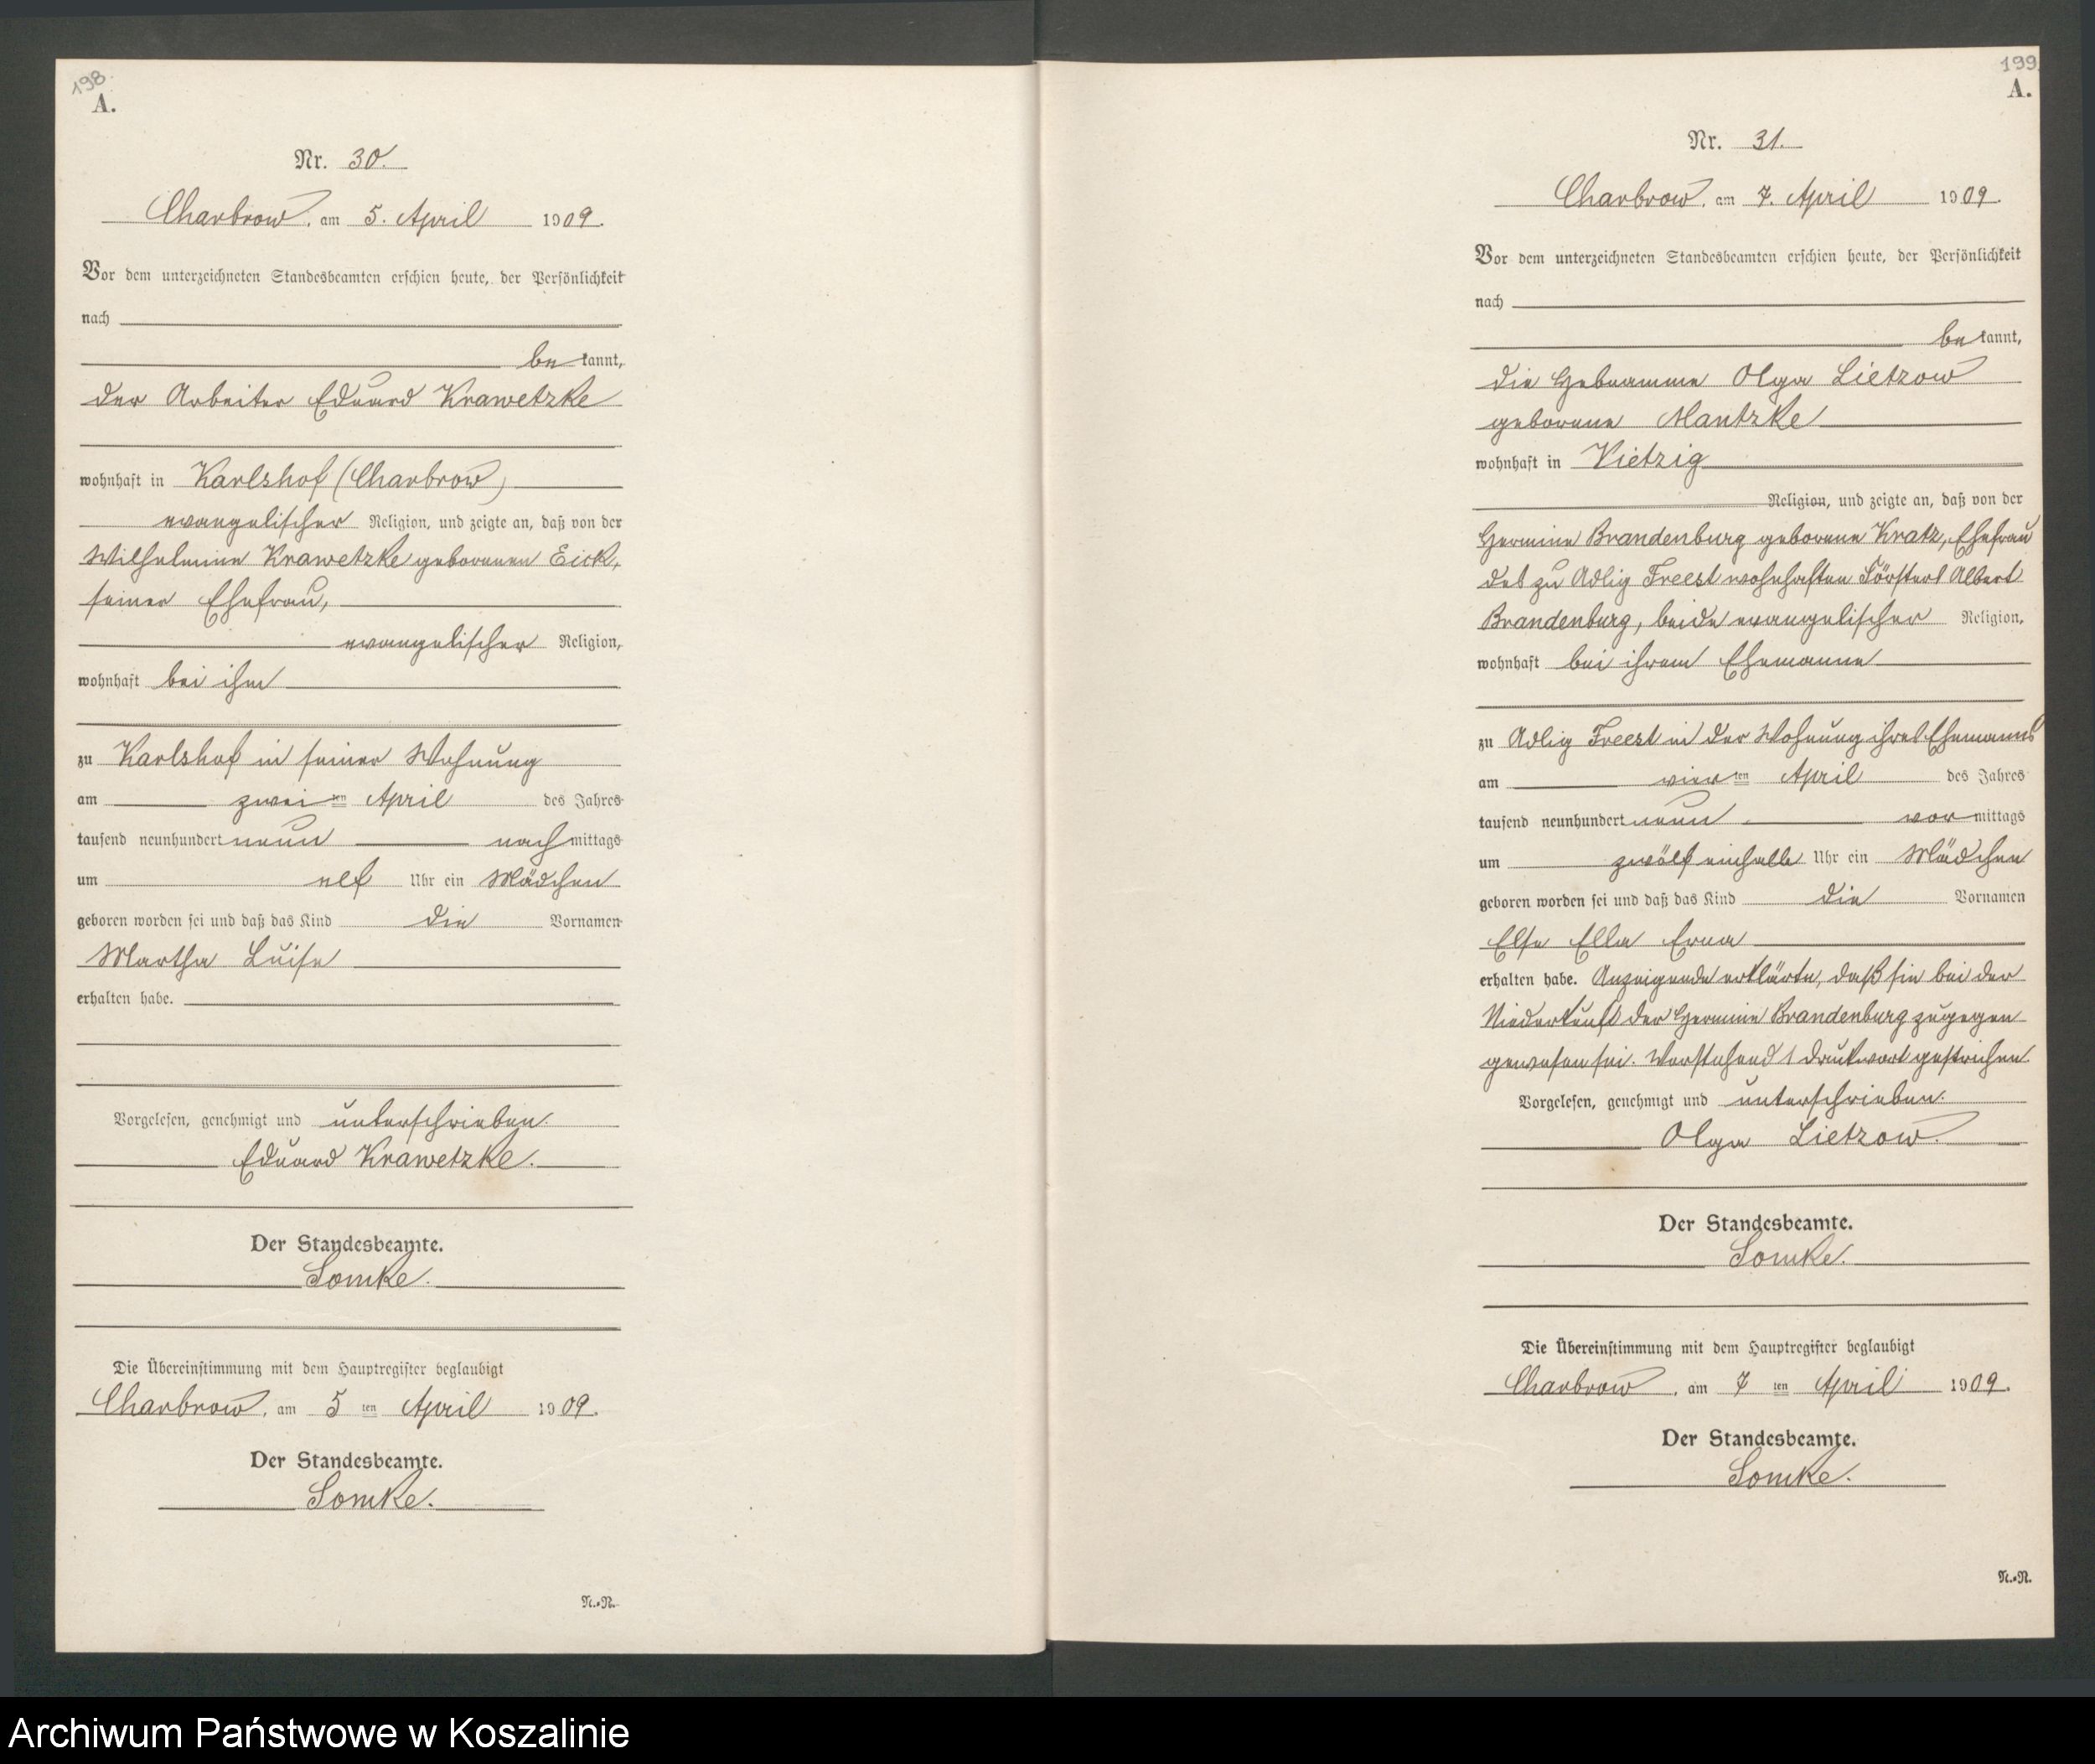 198.
A.
Nr. 30.
Charbrow, am 5. April 1909.
Vor dem unterzeichneten Standesbeamten erschien heute, der Persönlichkeit
nach
be kannt,
der Arbeiter Eduard Krawetzke
wohnhaft in Karlshof (Charbrow)
evangelischer Religion, und zeigte an, daß von der
Wilhelmine Krawetzke geborenen Eick,
seiner Ehefrau,
evangelischer Religion,
wohnhaft bei ihm
zu Karlshof in seiner Wohnung
am zwei ten April des Jahres
tausend neunhundert neun nach mittags
um elf Uhr ein Mädchen
geboren worden sei und daß das Kind die Vornamen
Martha Luise
erhalten habe.
Vorgelesen, genehmigt und unterschrieben.
Eduard Krawetzke.
Der Standesbeamte.
Lomke.
Die Übereinstimmung mit dem Hauptregister beglaubigt
Charbrow, am 5 ten April 1909.
Der Standesbeamte.
Lomke.
N.=N.
199
A.
Nr. 31.
Charbrow, am 7. April 1909.
Vor dem unterzeichneten Standesbeamten erschien heute, der Persönlichkeit
nach
be kannt,
die Hebamme Olga Lietzow
geborene Mantzke
wohnhaft in Vietzig
Religion, und zeigte an, daß von der
Hermine Brandenburg geborene Kratz, Ehefrau
des zu Adlig Freest wohnhaften Försters Albert
Brandenburg, beide evangelischer Religion,
wohnhaft bei ihrem Ehemanne
zu Adlig Freest in der Wohnung ihres Ehemanns
am vier ten April des Jahres
tausend neunhundert neun vor mittags
um zwölf einhalb Uhr ein Mädchen
geboren worden sei und daß das Kind die Vornamen
Else Ella Erna
erhalten habe. Anzeigende erklärte, daß sie bei der
Niederkunft der Hermine Brandenburg zugegen
gewesen sei. Vorstehend 1 Druckwort gestrichen.
Vorgelesen, genehmigt und unterschrieben.
Olga Lietzow.
Der Standesbeamte.
Lomke.
Die Übereinstimmung mit dem Hauptregister beglaubigt
Charbrow, am 7 ten April 1909.
Der Standesbeamte.
Lomke.
N.=N.
Archiwum Państwowe w Koszalinie